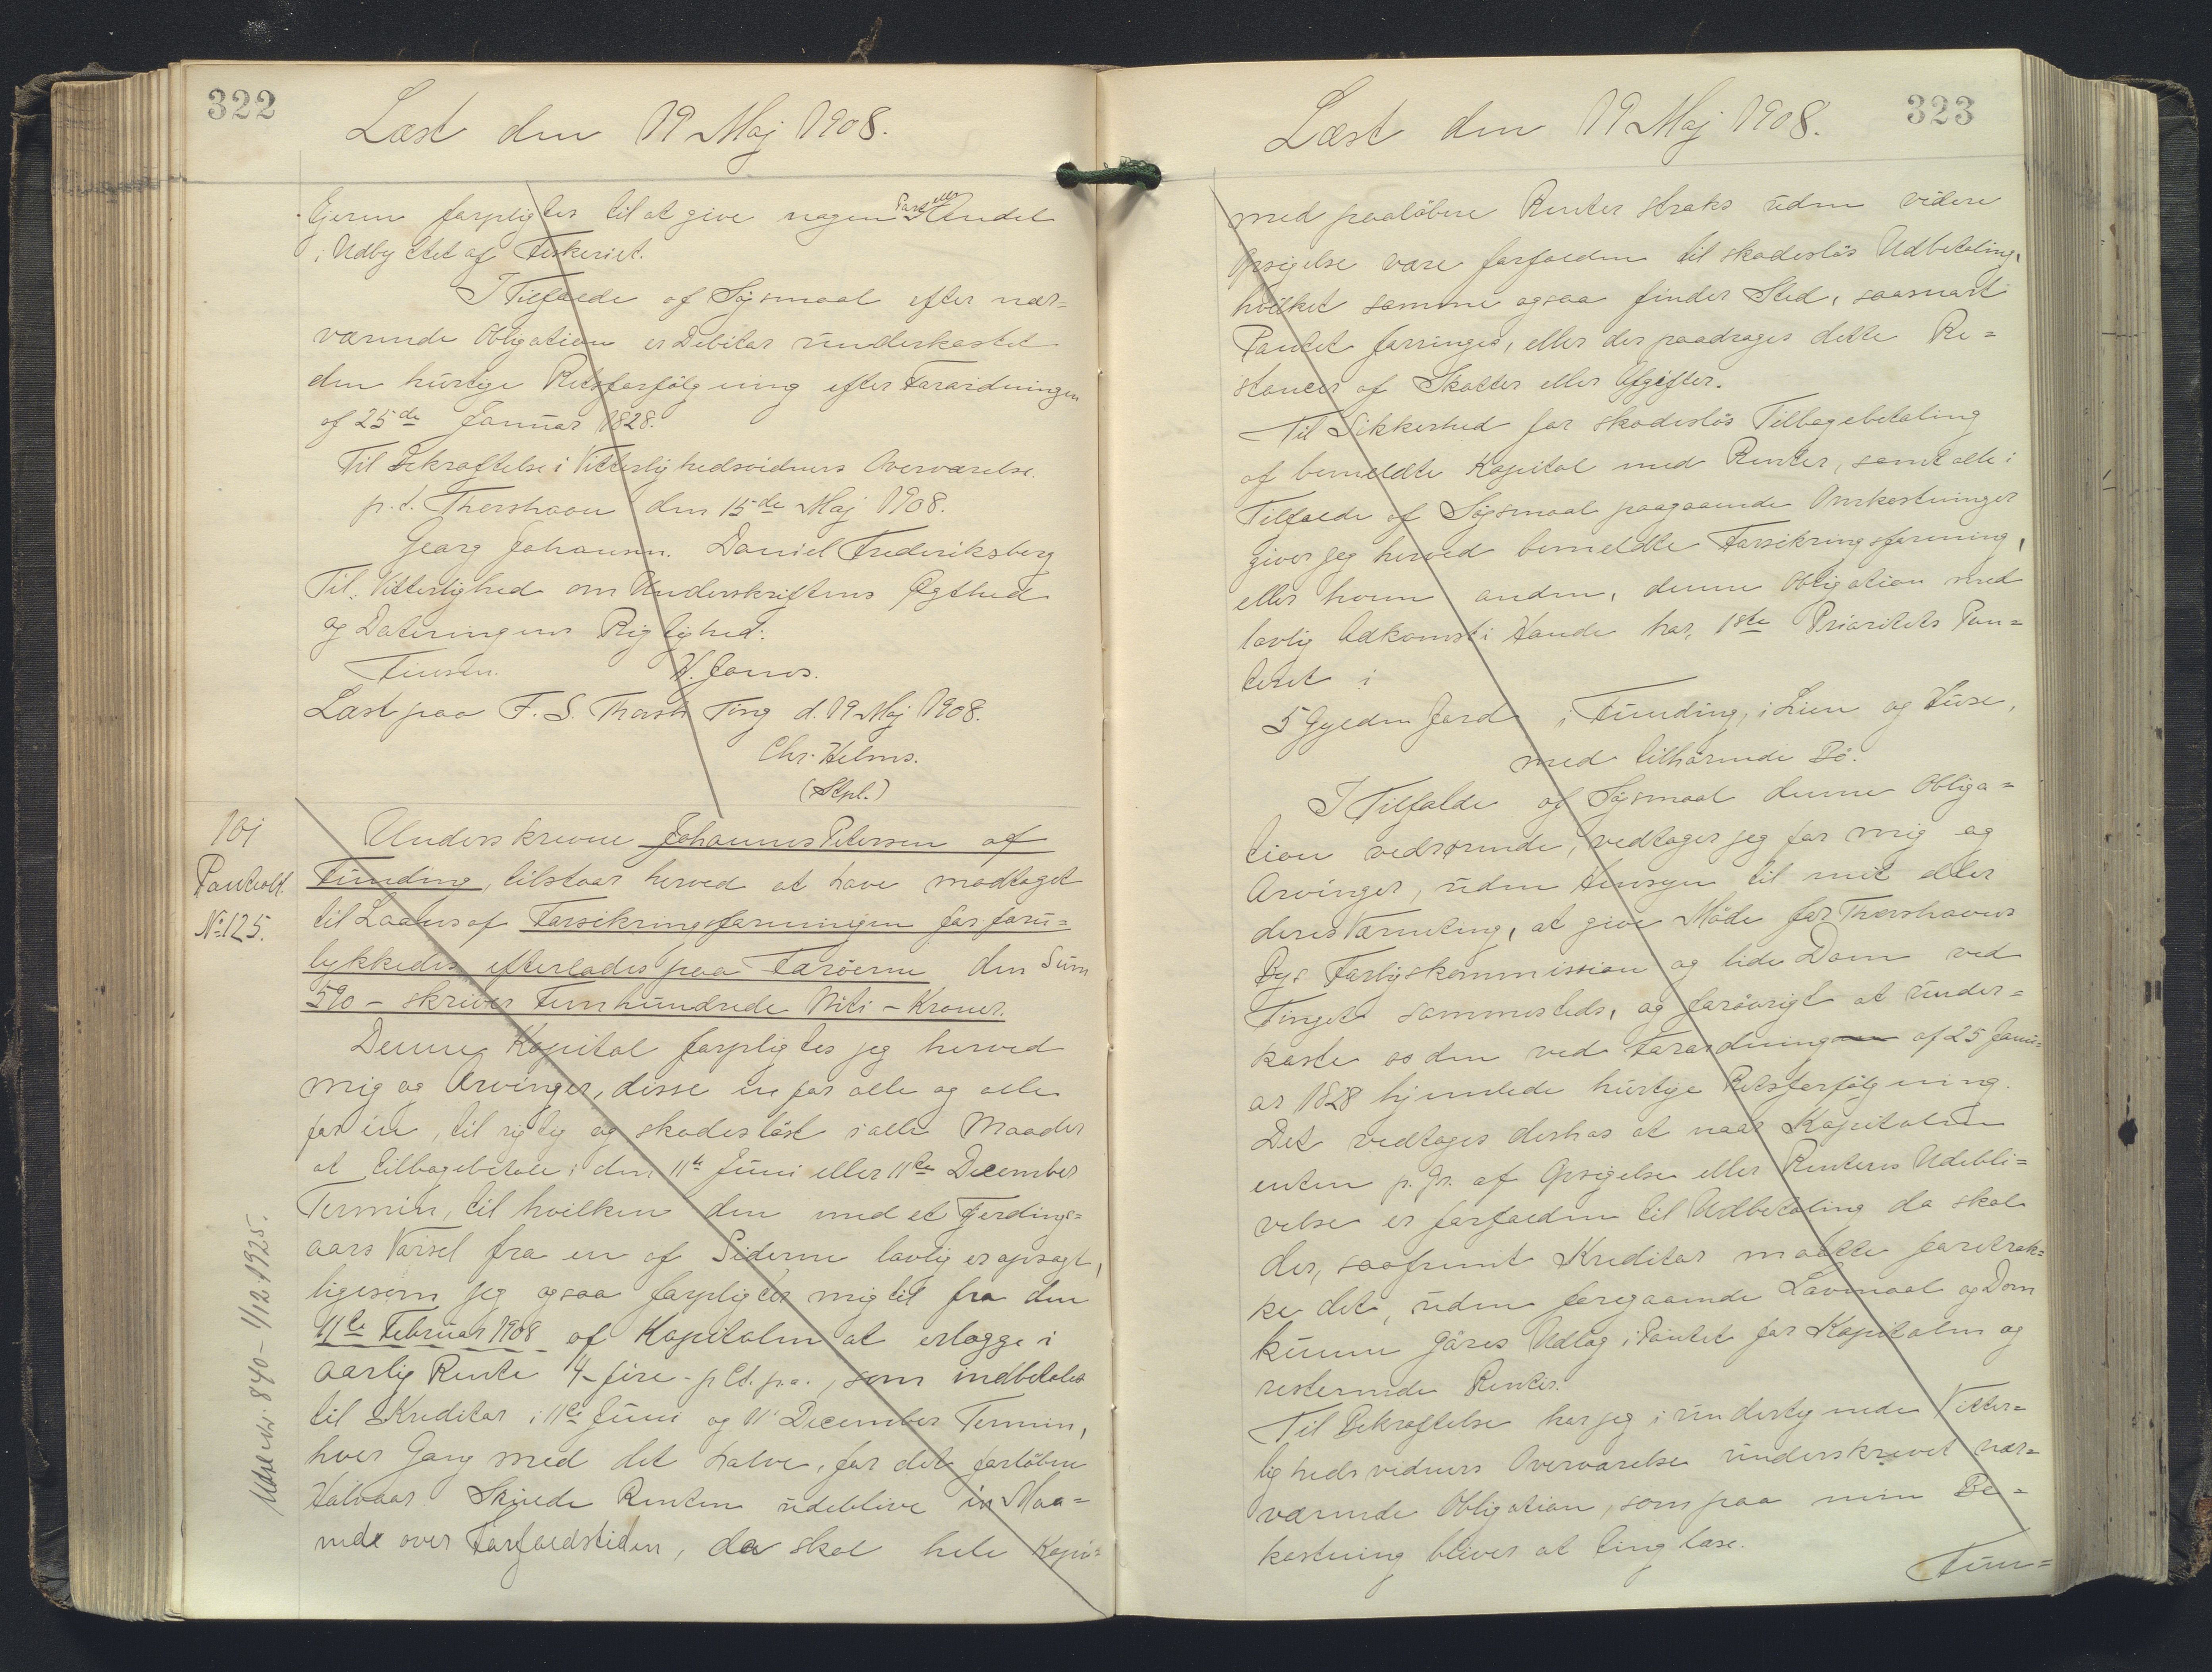 322
Læst den 19 Maj 1908.
Ejeren forpligtes til at give nogen Part eller Andel
i Udbyttet af Fiskeriet.
I Tilfælde af Søgsmaal efter nær=
værende Obligation er Debitor underkastet
den hurtige Retsforfølgning efter Forordningen
af 25de Januar 1828.
Til Bekræftelse i Vitterlighedsvidners Overværelse.
p.t. Thorshavn den 15de Maj 1908.
Georg Johansen. Daniel Frederiksberg
Til Vitterlighed om Underskriftens Ægthed
og Dateringens Rigtighed:
Finsen. H. Jones.
Læst paa F. S. Thorsh Ting d. 19 Maj 1908.
Chr. Helms.
(Stpl.)
101
Pantebl.
No 125.
Underskrevne Johannes Petersen af
Funding, tilstaar herved at have modtaget
til Laans af Forsikringsforeningen for foru=
lykkedes efterladte paa Færöerne den Sum
590 - skriver Femhundrede Niti - Kroner.
Denne Kapital forpligter jeg herved
mig og Arvinger, disse en for alle og alle
for en, til rigtig og skadesløst i alle Maader
at tilbagebetale i den 11te Juni eller 11te December
Termin, til hvilken den med et Fjerdings=
aars Varsel fra en af Siderne lovlig er opsagt,
ligesom jeg ogsaa forpligter mig til fra den
11te Februar 1908 af Kapitalen at erlægge i
aarlig Rente 4 - fire - p Ct. p.a., som indbetales
til Kreditor i 11te Juni og 11' December Termin,
hver Gang med det halve, for det forløbne
Halvaar. Skulde Renten udeblive en Maa=
ned over Forfaldstiden, da skal hele Kapi=
Udsl. 840 - 1/12 1925.
323
Læst den 19 Maj 1908.
med paaløbne Renter straks uden videre
Opsigelse være forfalden til skadesløs Udbetaling,
hvilket samme ogsaa finder Sted, saasnart
Pantet forringes, eller der paadrages dette Re=
stancer af Skatter eller Afgifter.
Til Sikkerhed for skadesløs Tilbagebetaling
af bemeldte Kapital med Renter, samt alle i
Tilfælde af Søgsmaal paagaaende Omkostninger
giver jeg herved bemeldte Forsikringsforening,
eller hvem anden, denne Obligation med
lovlig Adkomst i Hænde har, 1ste Prioritets Pan=
teret i
5 Gylden Jord i Funding, i Lien og Huse,
med tilhørende Bö.
I Tilfælde af Søgsmaal denne Obliga=
tion vedrørende, vedtager jeg for mig og
Arvinger, uden Hensyn til mit eller
deres Værneting, at give Möde for Thorshavns
Bys Forligskommission og lide Dom ved
Tinget sammesteds, og forövrigt at under=
kaste os den ved Forordning af 25 Janu=
ar 1828 hjemlede hurtige Retsforfølgning.
Det vedtages derhos at naar Kapitalen
enten p. Gr. af Opsigelse eller Renters Udebli=
velse er forfalden til Udbetaling da skal
der, saafremt Kreditor maatte foretræk=
ke det, uden foregaaende Lovmaal og Dom
kunne göres Udlæg i Pantet for Kapitalen og
resterende Renter.
Til Bekræftelse har jeg i undertegnede Vitter=
lighedsvidners Overværelse underskrevet nær=
værende Obligation, som paa min Be=
kostning bliver at tinglæse.
Fun=